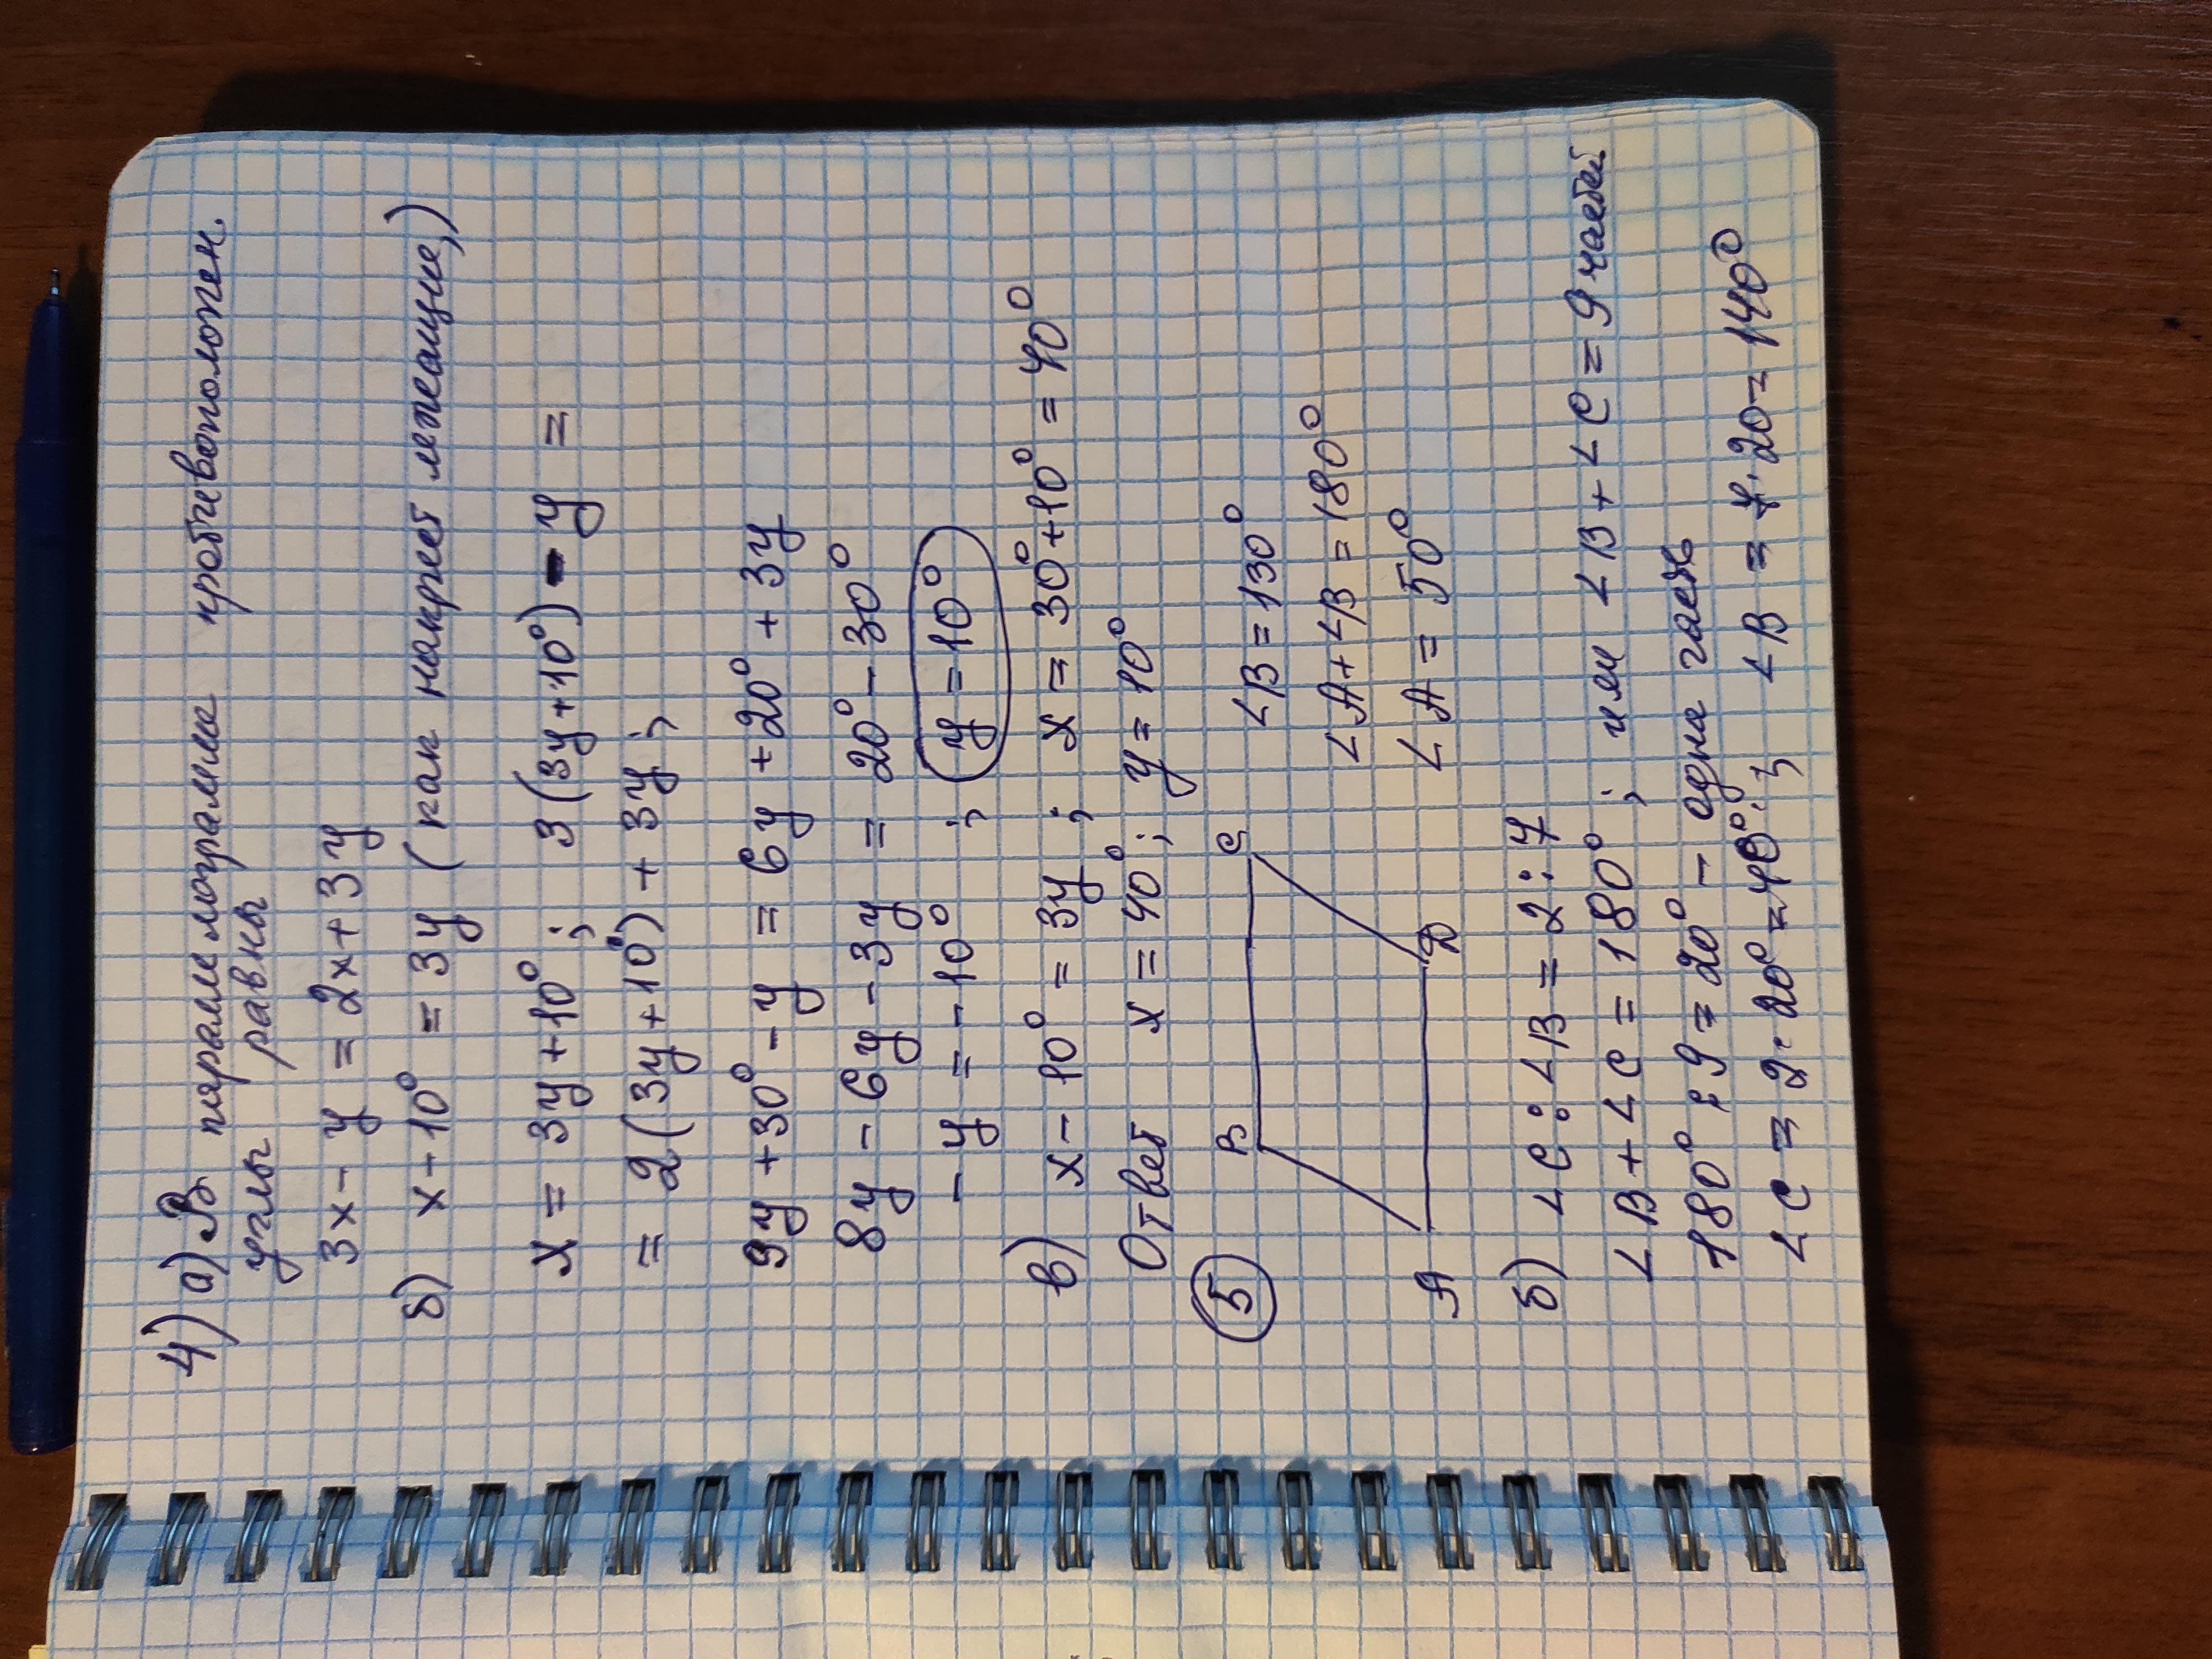 4) а) В параллелограмме противополож.
углы равны
3x - y = 2x + 3y
б) x - 10° = 3y (как накрест лежащие,)
x = 3y + 10° ; 3(3y + 10°) - y =
= 2(3y + 10°) + 3y ;
9y + 30° - y = 6y + 20° + 3y
8y - 6y - 3y = 20° - 30°
- y = - 10° ; y = 10°
в) x - 10° = 3y ; x = 30° + 10° = 40°
Ответ x = 40° ; y = 10°
5 B C ∠B = 130°
∠A + ∠B = 180°
A D ∠A = 50°
б) ∠C : ∠B = 2 : 7
∠B + ∠C = 180° ; или ∠B + ∠C = 9 частей
180° : 9 = 20° - одна часть
∠C = 2 · 20° = 40° ; ∠B = 7 · 20 = 140°